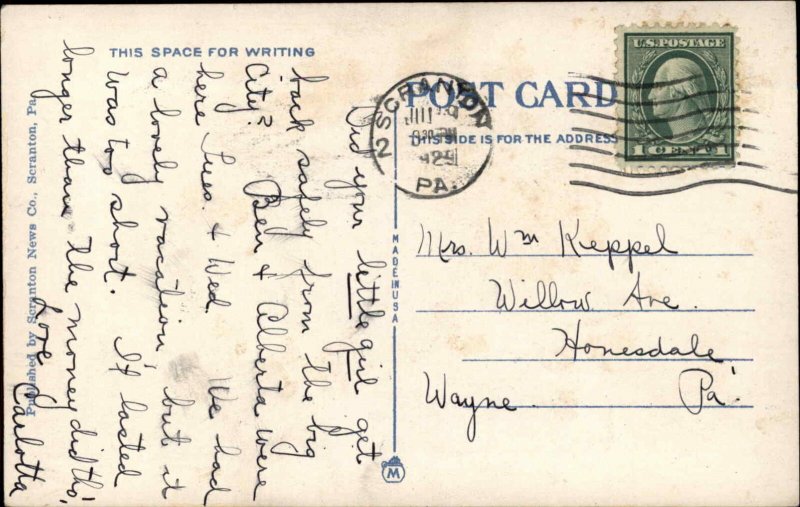 THIS SPACE FOR WRITING
Did your little girl get
back safely from the big
City? Ben & Alberta were
here Tues. & Wed. We had
a lovely vacation but it
was too short. It lasted
longer than the money did tho',
Love, Carlotta
Published by Scranton News Co., Scranton, Pa.
MADE IN USA
M
POST CARD
THIS SIDE IS FOR THE ADDRESS
SCRANTON
2
PA.
U.S. POSTAGE
1 CENT 1
Mrs. Wm Kieppel
Willow Ave.
Honesdale
Wayne Pa.